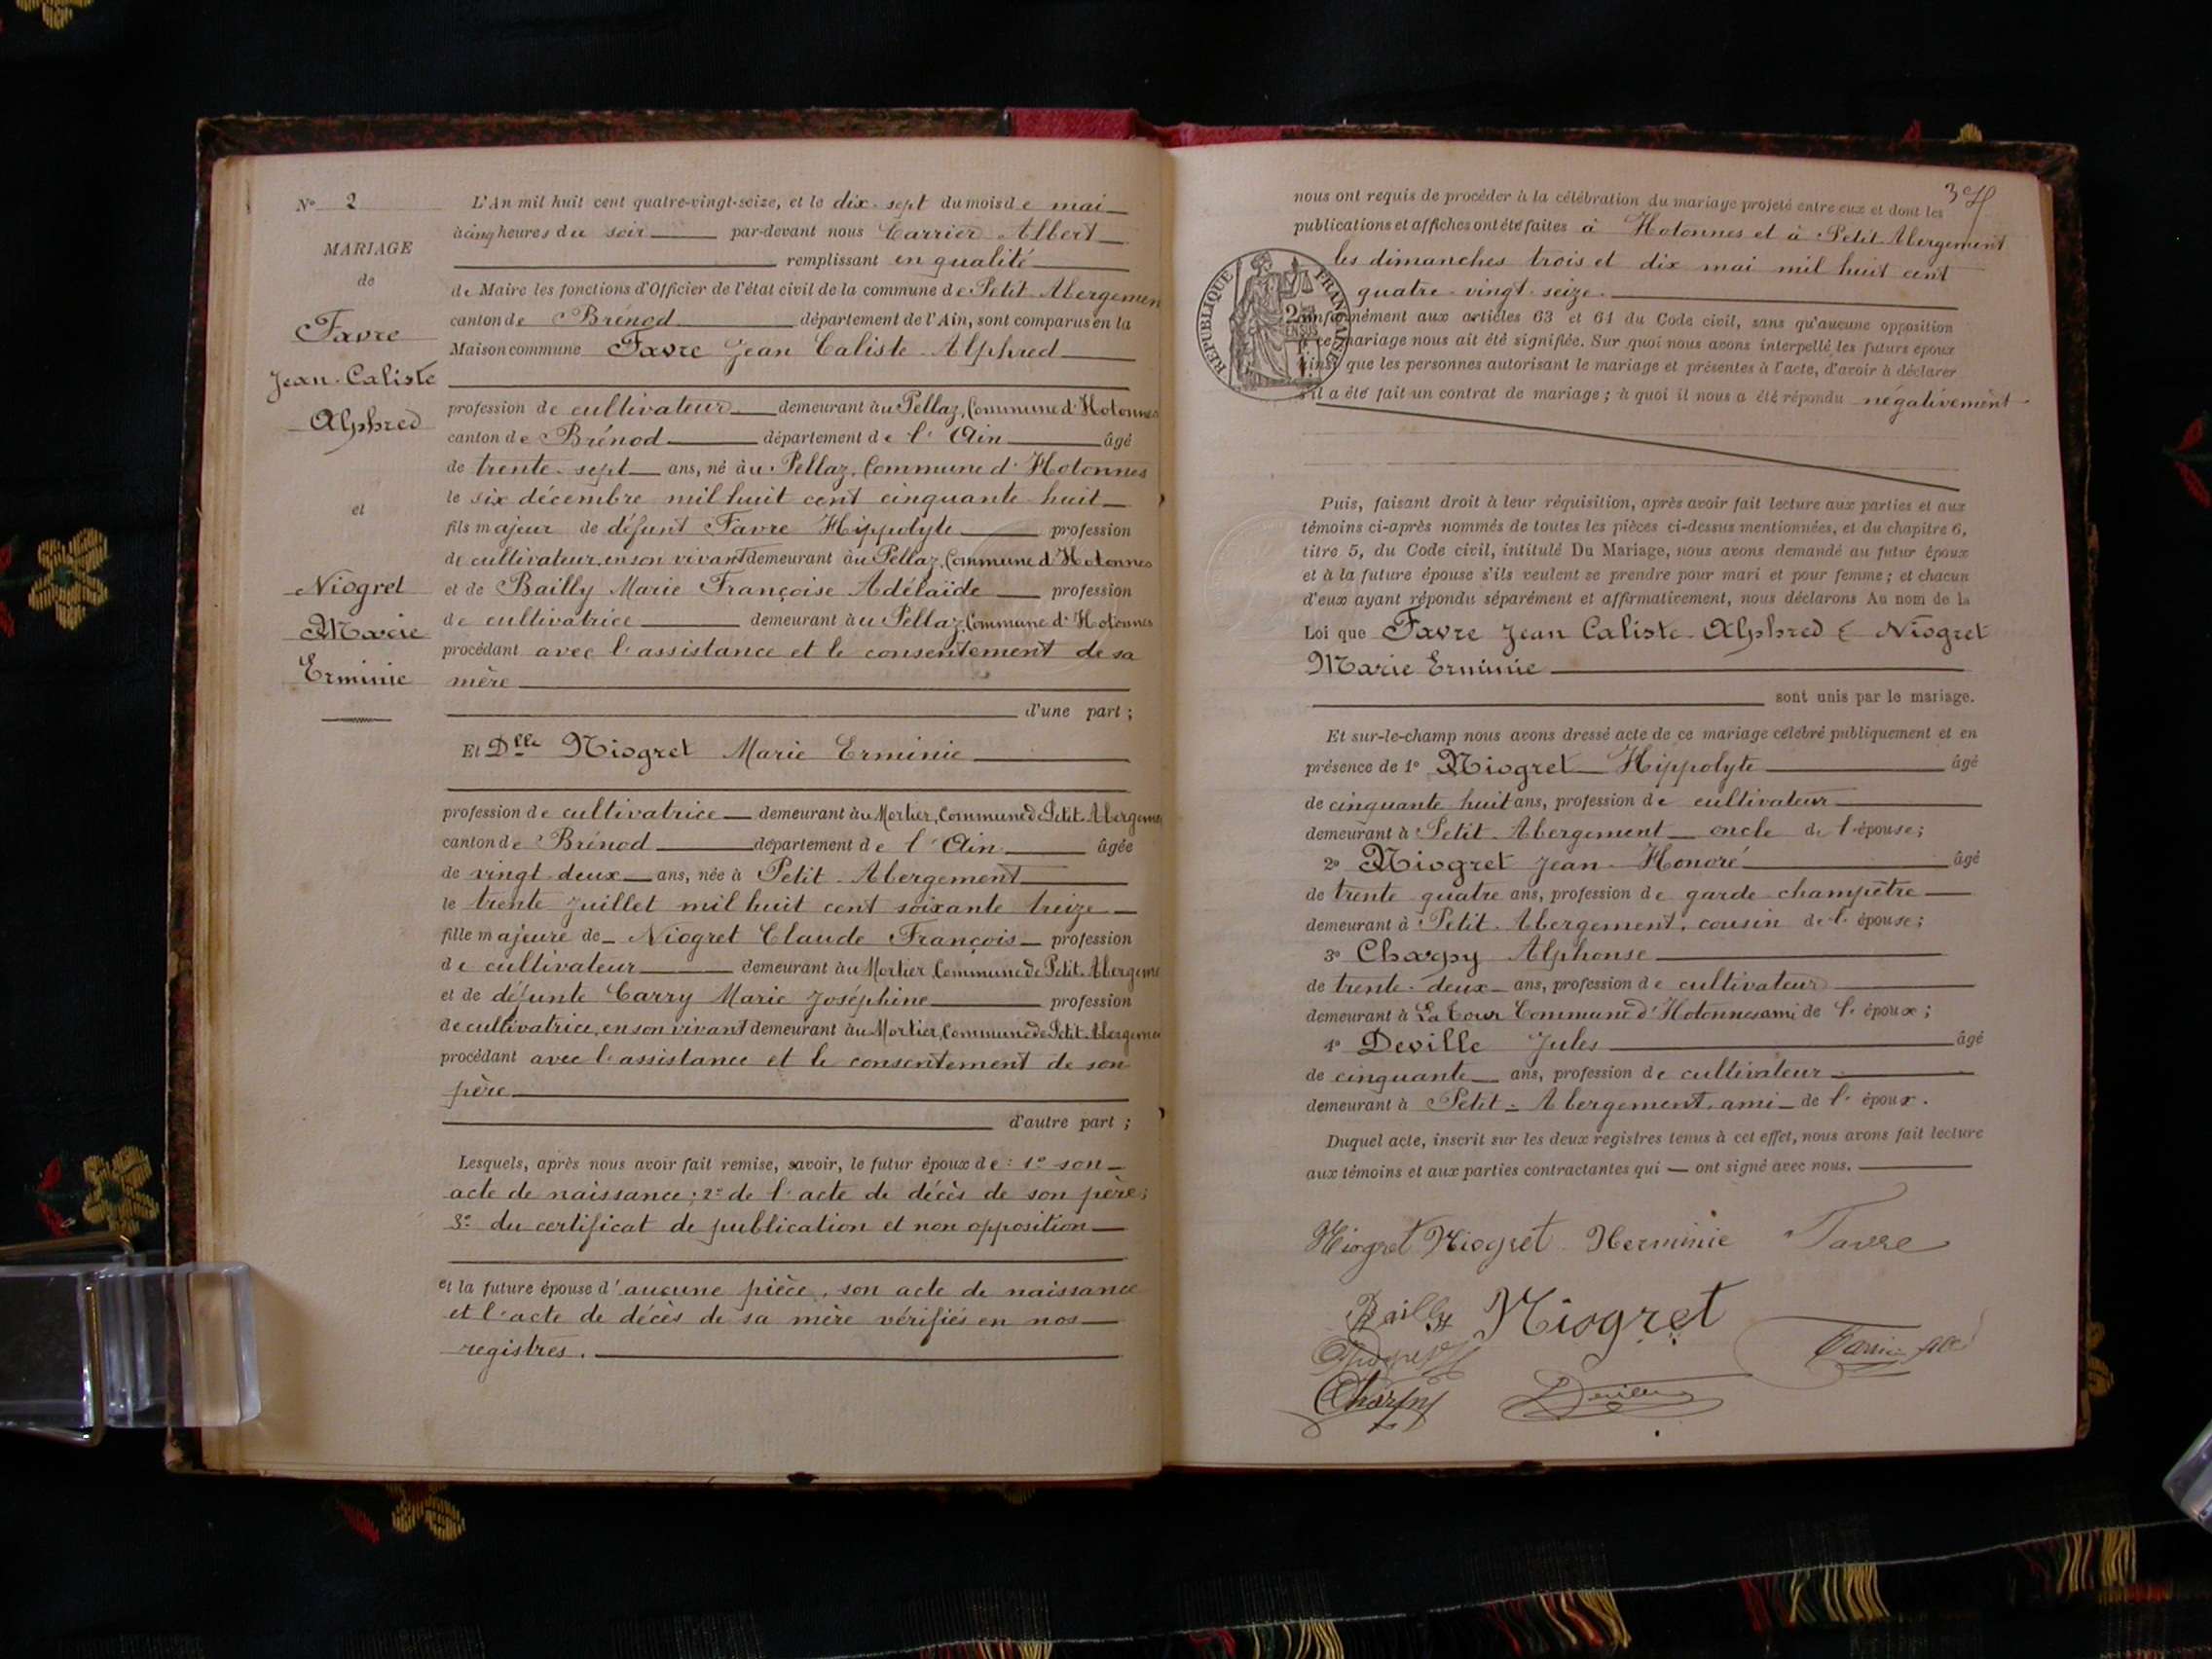 N° 2
MARIAGE
de
Favre
Jean-Caliste
Alphred
et
Niogret
Marie
Erminie
L'An mil huit cent quatre-vingt-seize, et le dix-sept du mois de mai
à cinq heures du soir par-devant nous Carrier Albert
remplissant en qualité
de Maire les fonctions d'Officier de l'état civil de la commune de Petit-Abergemen
canton de Brénod département de l'Ain, sont comparus en la
Maison commune Favre Jean Caliste Alphred
profession de cultivateur demeurant au Pellaz, Commune d'Hotonnes
canton de Brénod département de l'Ain âgé
de trente-sept ans, né au Pellaz, Commune d'Hotonnes
le six décembre mil huit cent cinquante-huit
fils majeur de défunt Favre Hippolyte profession
de cultivateur, en son vivant demeurant au Pellaz, Commune d'Hotonnes
et de Bailly Marie Françoise Adélaïde profession
de cultivatrice demeurant au Pellaz, Commune d'Hotonnes
procédant avec l'assistance et le consentement de sa
mère
d'une part ;
Et Dlle Niogret Marie Erminie
profession de cultivatrice demeurant au Mortier, Commune de Petit-Abergeme
canton de Brénod département de l'Ain âgée
de vingt-deux ans, née à Petit-Abergement
le trente Juillet mil huit cent soixante treize
fille majeure de Niogret Claude François profession
de cultivateur demeurant au Mortier, Commune de Petit-Abergeme
et de défunte Carry Marie Joséphine profession
de cultivatrice, en son vivant demeurant au Mortier, Commune de Petit-Abergemen
procédant avec l'assistance et le consentement de son
père
d'autre part ;
Lesquels, après nous avoir fait remise, savoir, le futur époux de : 1° son
acte de naissance ; 2° de l'acte de décès de son père ;
3° du certificat de publication et non opposition
et la future épouse d'aucune pièce, son acte de naissance
et l'acte de décès de sa mère vérifiés en nos
registres.
37
nous ont requis de procéder à la célébration du mariage projeté entre eux et dont les
publications et affiches ont été faites à Hotonnes et à Petit-Abergement
les dimanches trois et dix mai mil huit cent
quatre-vingt-seize.
RÉPUBLIQUE FRANÇAISE
conformément aux articles 63 et 64 du Code civil, sans qu'aucune opposition
à ce mariage nous ait été signifiée. Sur quoi nous avons interpellé les futurs époux
ainsi que les personnes autorisant le mariage et présentes à l'acte, d'avoir à déclarer
s'il a été fait un contrat de mariage ; à quoi il nous a été répondu négativement
Puis, faisant droit à leur réquisition, après avoir fait lecture aux parties et aux
témoins ci-après nommés de toutes les pièces ci-dessus mentionnées, et du chapitre 6,
titre 5, du Code civil, intitulé Du Mariage, nous avons demandé au futur époux
et à la future épouse s'ils veulent se prendre pour mari et pour femme ; et chacun
d'eux ayant répondu séparément et affirmativement, nous déclarons Au nom de la
Loi que Favre Jean Caliste Alphred & Niogret
Marie Erminie
sont unis par le mariage.
Et sur-le-champ nous avons dressé acte de ce mariage célébré publiquement et en
présence de 1° Niogret Hippolyte âgé
de cinquante huit ans, profession de cultivateur
demeurant à Petit-Abergement oncle de l'épouse ;
2° Niogret Jean-Honoré âgé
de trente quatre ans, profession de garde champêtre
demeurant à Petit-Abergement, cousin de l'épouse ;
3° Charpy Alphonse
de trente-deux ans, profession de cultivateur
demeurant à La Cour Commune d'Hotonnes ami de l'époux ;
4° Deville Jules âgé
de cinquante ans, profession de cultivateur
demeurant à Petit-Abergement, ami de l'époux.
Duquel acte, inscrit sur les deux registres tenus à cet effet, nous avons fait lecture
aux témoins et aux parties contractantes qui ont signé avec nous.
Niogret Niogret Herminie Favre
Bailly Niogret
Charpy Deville